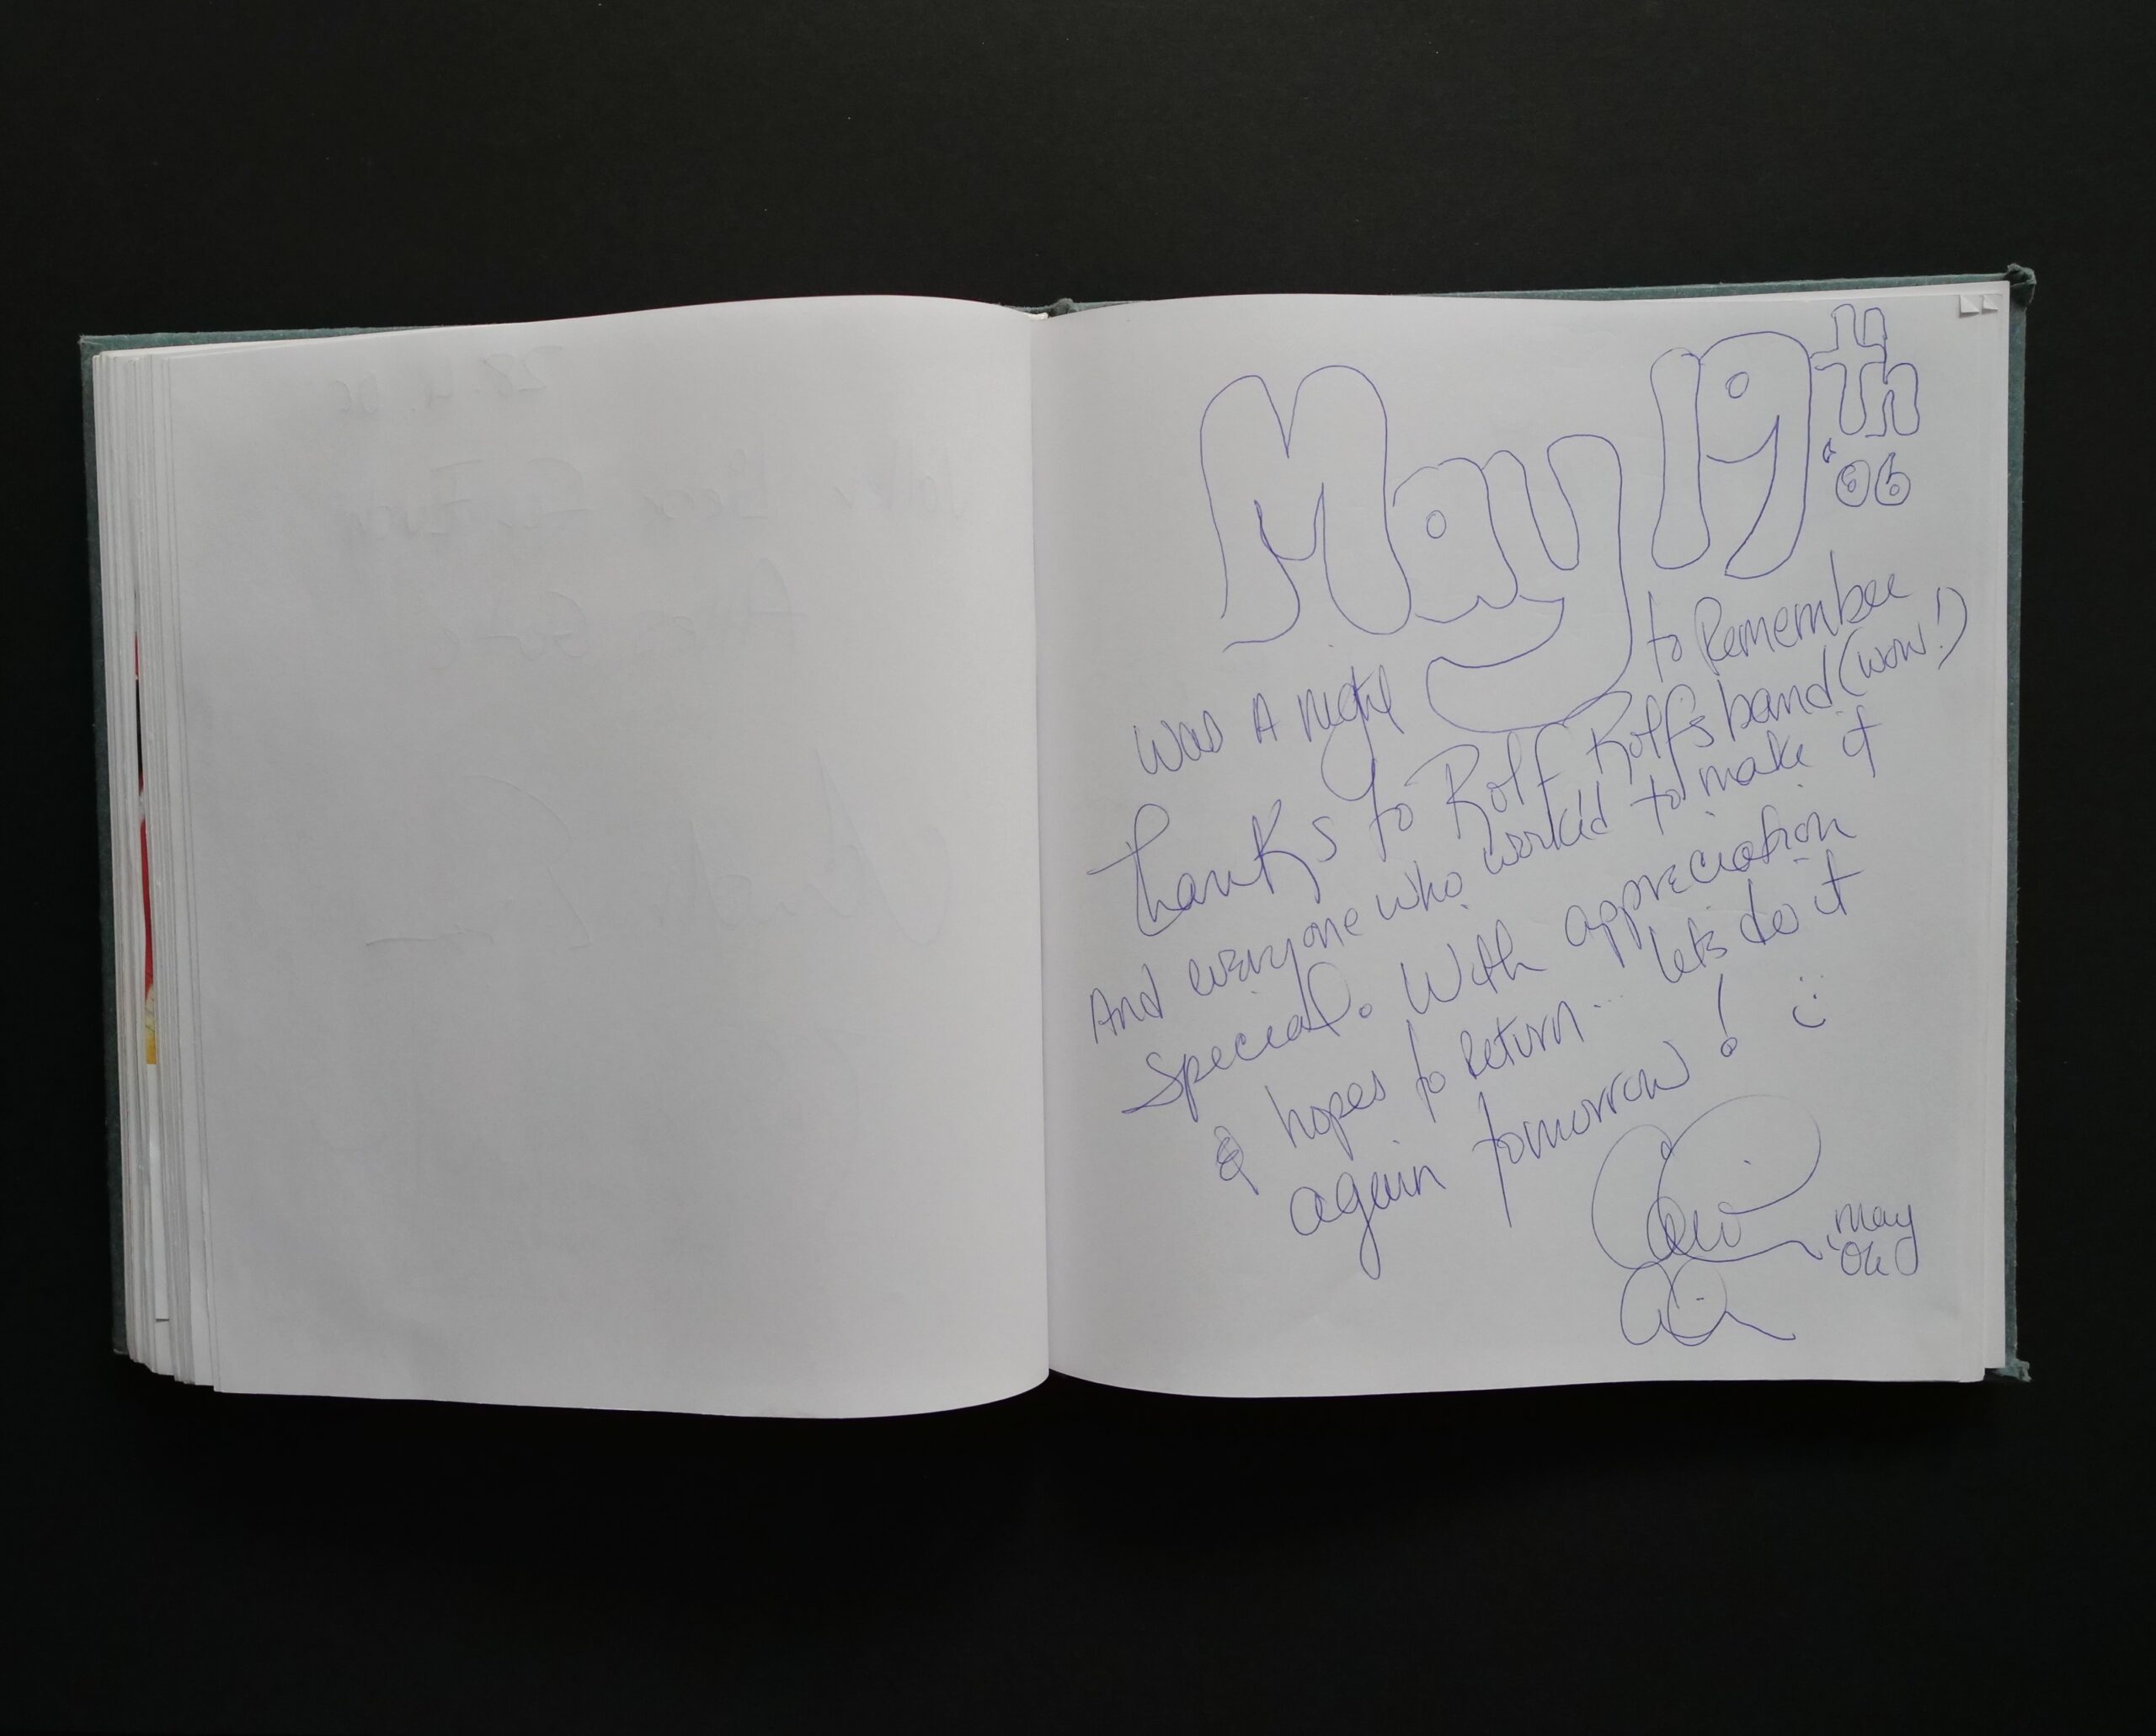 May 19th
'06
was A night to Remember
thanks to Rolf Rolfs band (wow!)
And everyone who worked to make it
special. With appreciation
& hopes to return... lets do it
again tomorrow! :)
May
'06